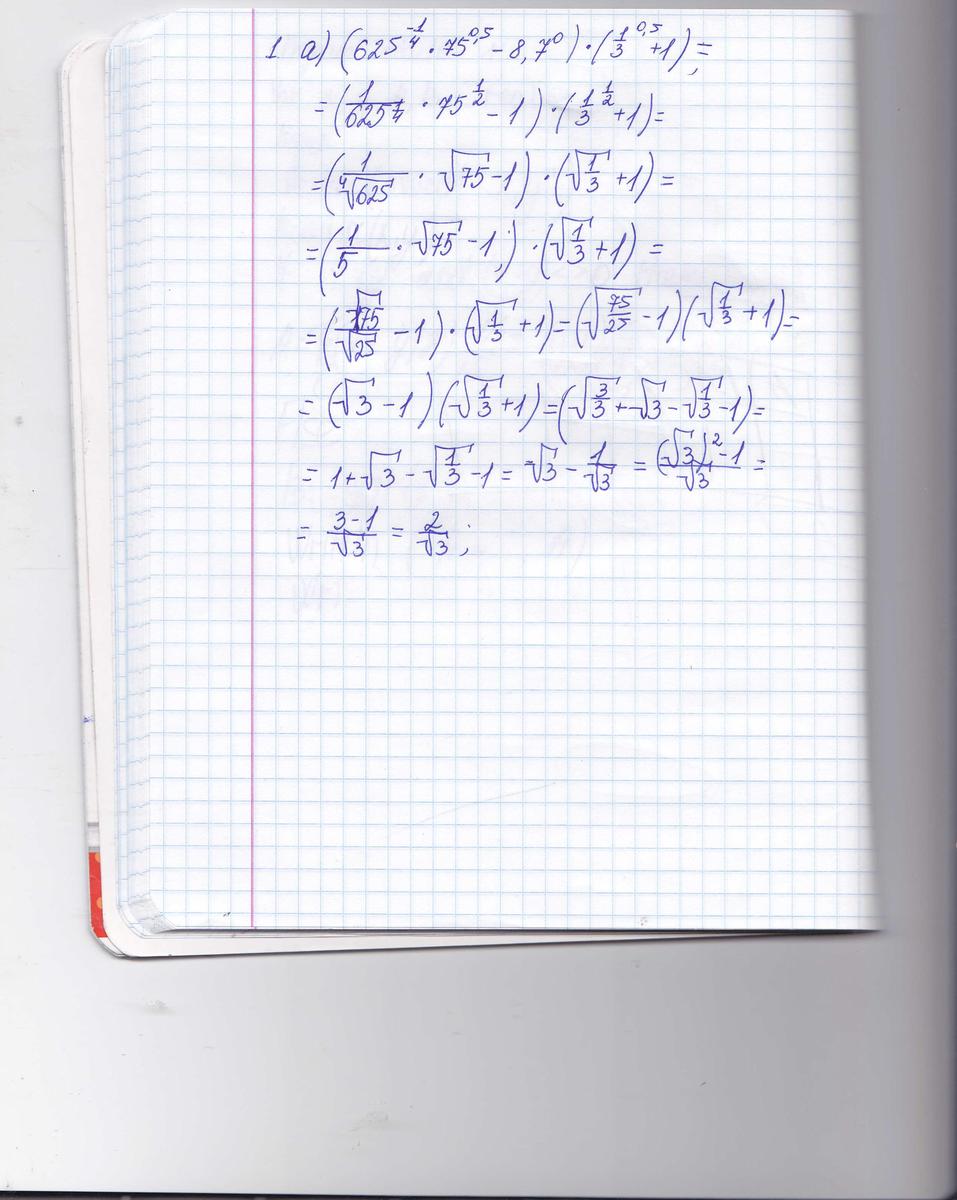 1 а) (625^-1/4 · 75^0,5 - 8,7^0) · (1/3^0,5 + 1) =;
= (1/625^1/4 · 75^1/2 - 1) · (1/3^1/2 + 1) =
= (1/⁴√625 · √75 - 1) · (√1/3 + 1) =
= (1/5 · √75 - 1;) · (√1/3 + 1) =
= (√75/√25 - 1) · (√1/3 + 1) = (√75/25 - 1)(√1/3 + 1) =
= (√3 - 1)(√1/3 + 1) = (√3/3 + √3 - √1/3 - 1) =
= 1 + √3 - √1/3 - 1 = √3 - 1/√3 = (√3)² - 1/√3 =
= 3 - 1/√3 = 2/√3;